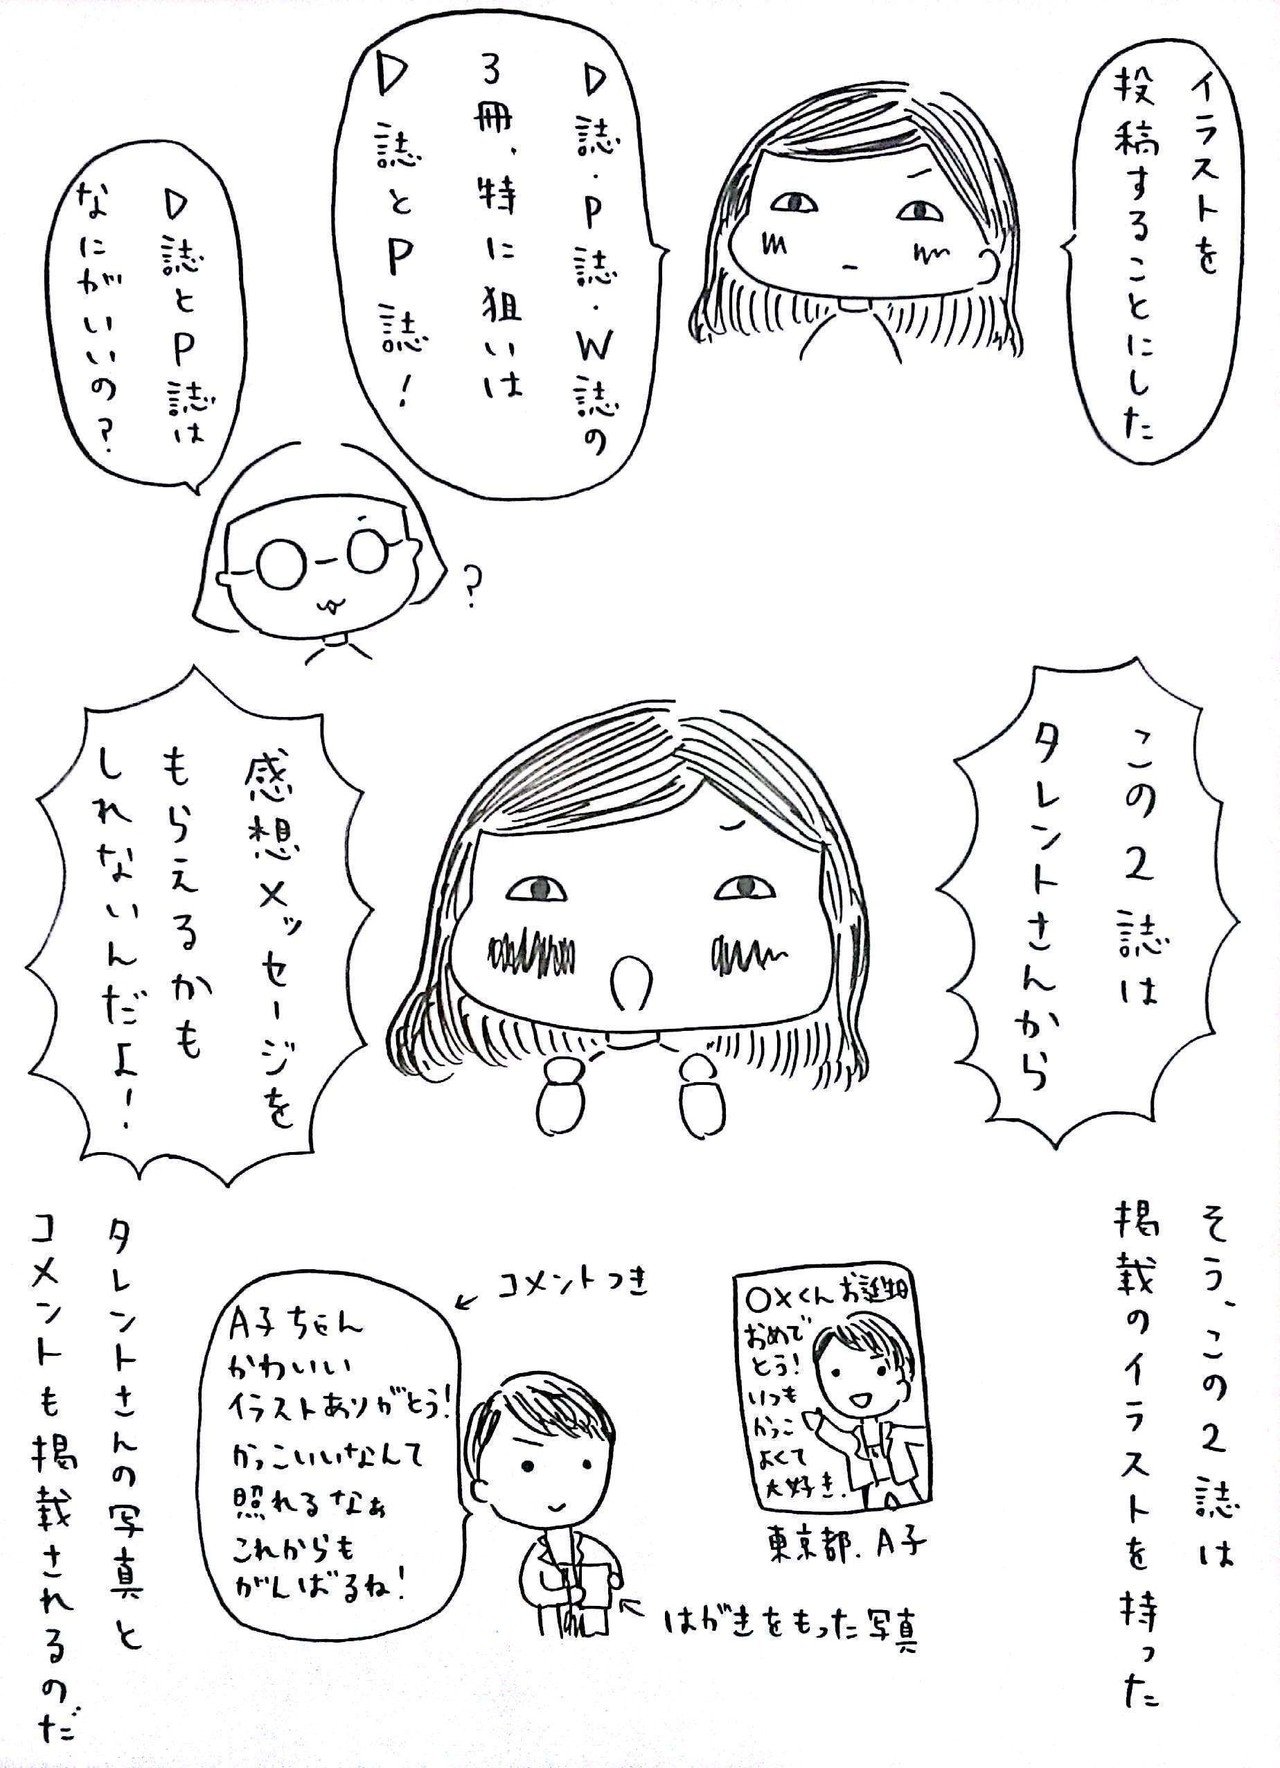 イラストを
投稿することにした
D誌・P誌・W誌の
3冊、特に狙いは
D誌とP誌！
D誌とP誌は
なにがいいの？
?
この2誌は
タレントさんから
感想メッセージを
もらえるかも
しれないんだよ！
そう、この2誌は
掲載のイラストを持った
○×くんお誕生日
おめで
とう！
いつも
かっこ
よくて
大好き.
東京都.A子
コメントつき
A子ちゃん
かわいい
イラストありがとう！
かっこいいなんて
照れるなぁ
これからも
がんばるね！
はがきをもった写真
タレントさんの写真と
コメントも掲載されるのだ